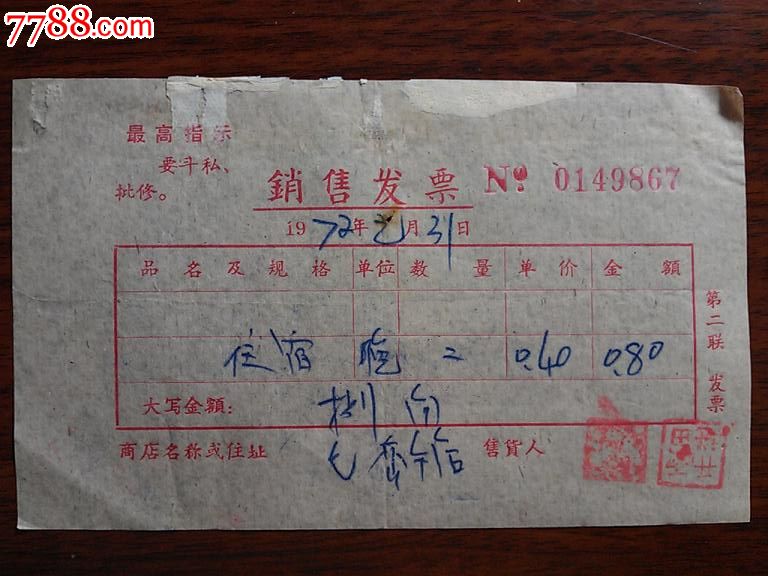 7788.com
中国收藏热线
最高指示
要斗私、
批修。
銷售发票 № 0149867
1972年 月31日
品名及规格 单位 数量 单价 金額
住宿 晚 二 0.40 0.80
大写金額: 捌角
商店名称或住址 售貨人
第二联 发票